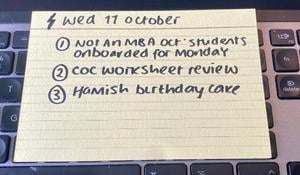 Wed 11 October
① Not An MBA Oct: students
onboarded for Monday
② COC worksheet review
③ Hamish birthday cake
delete